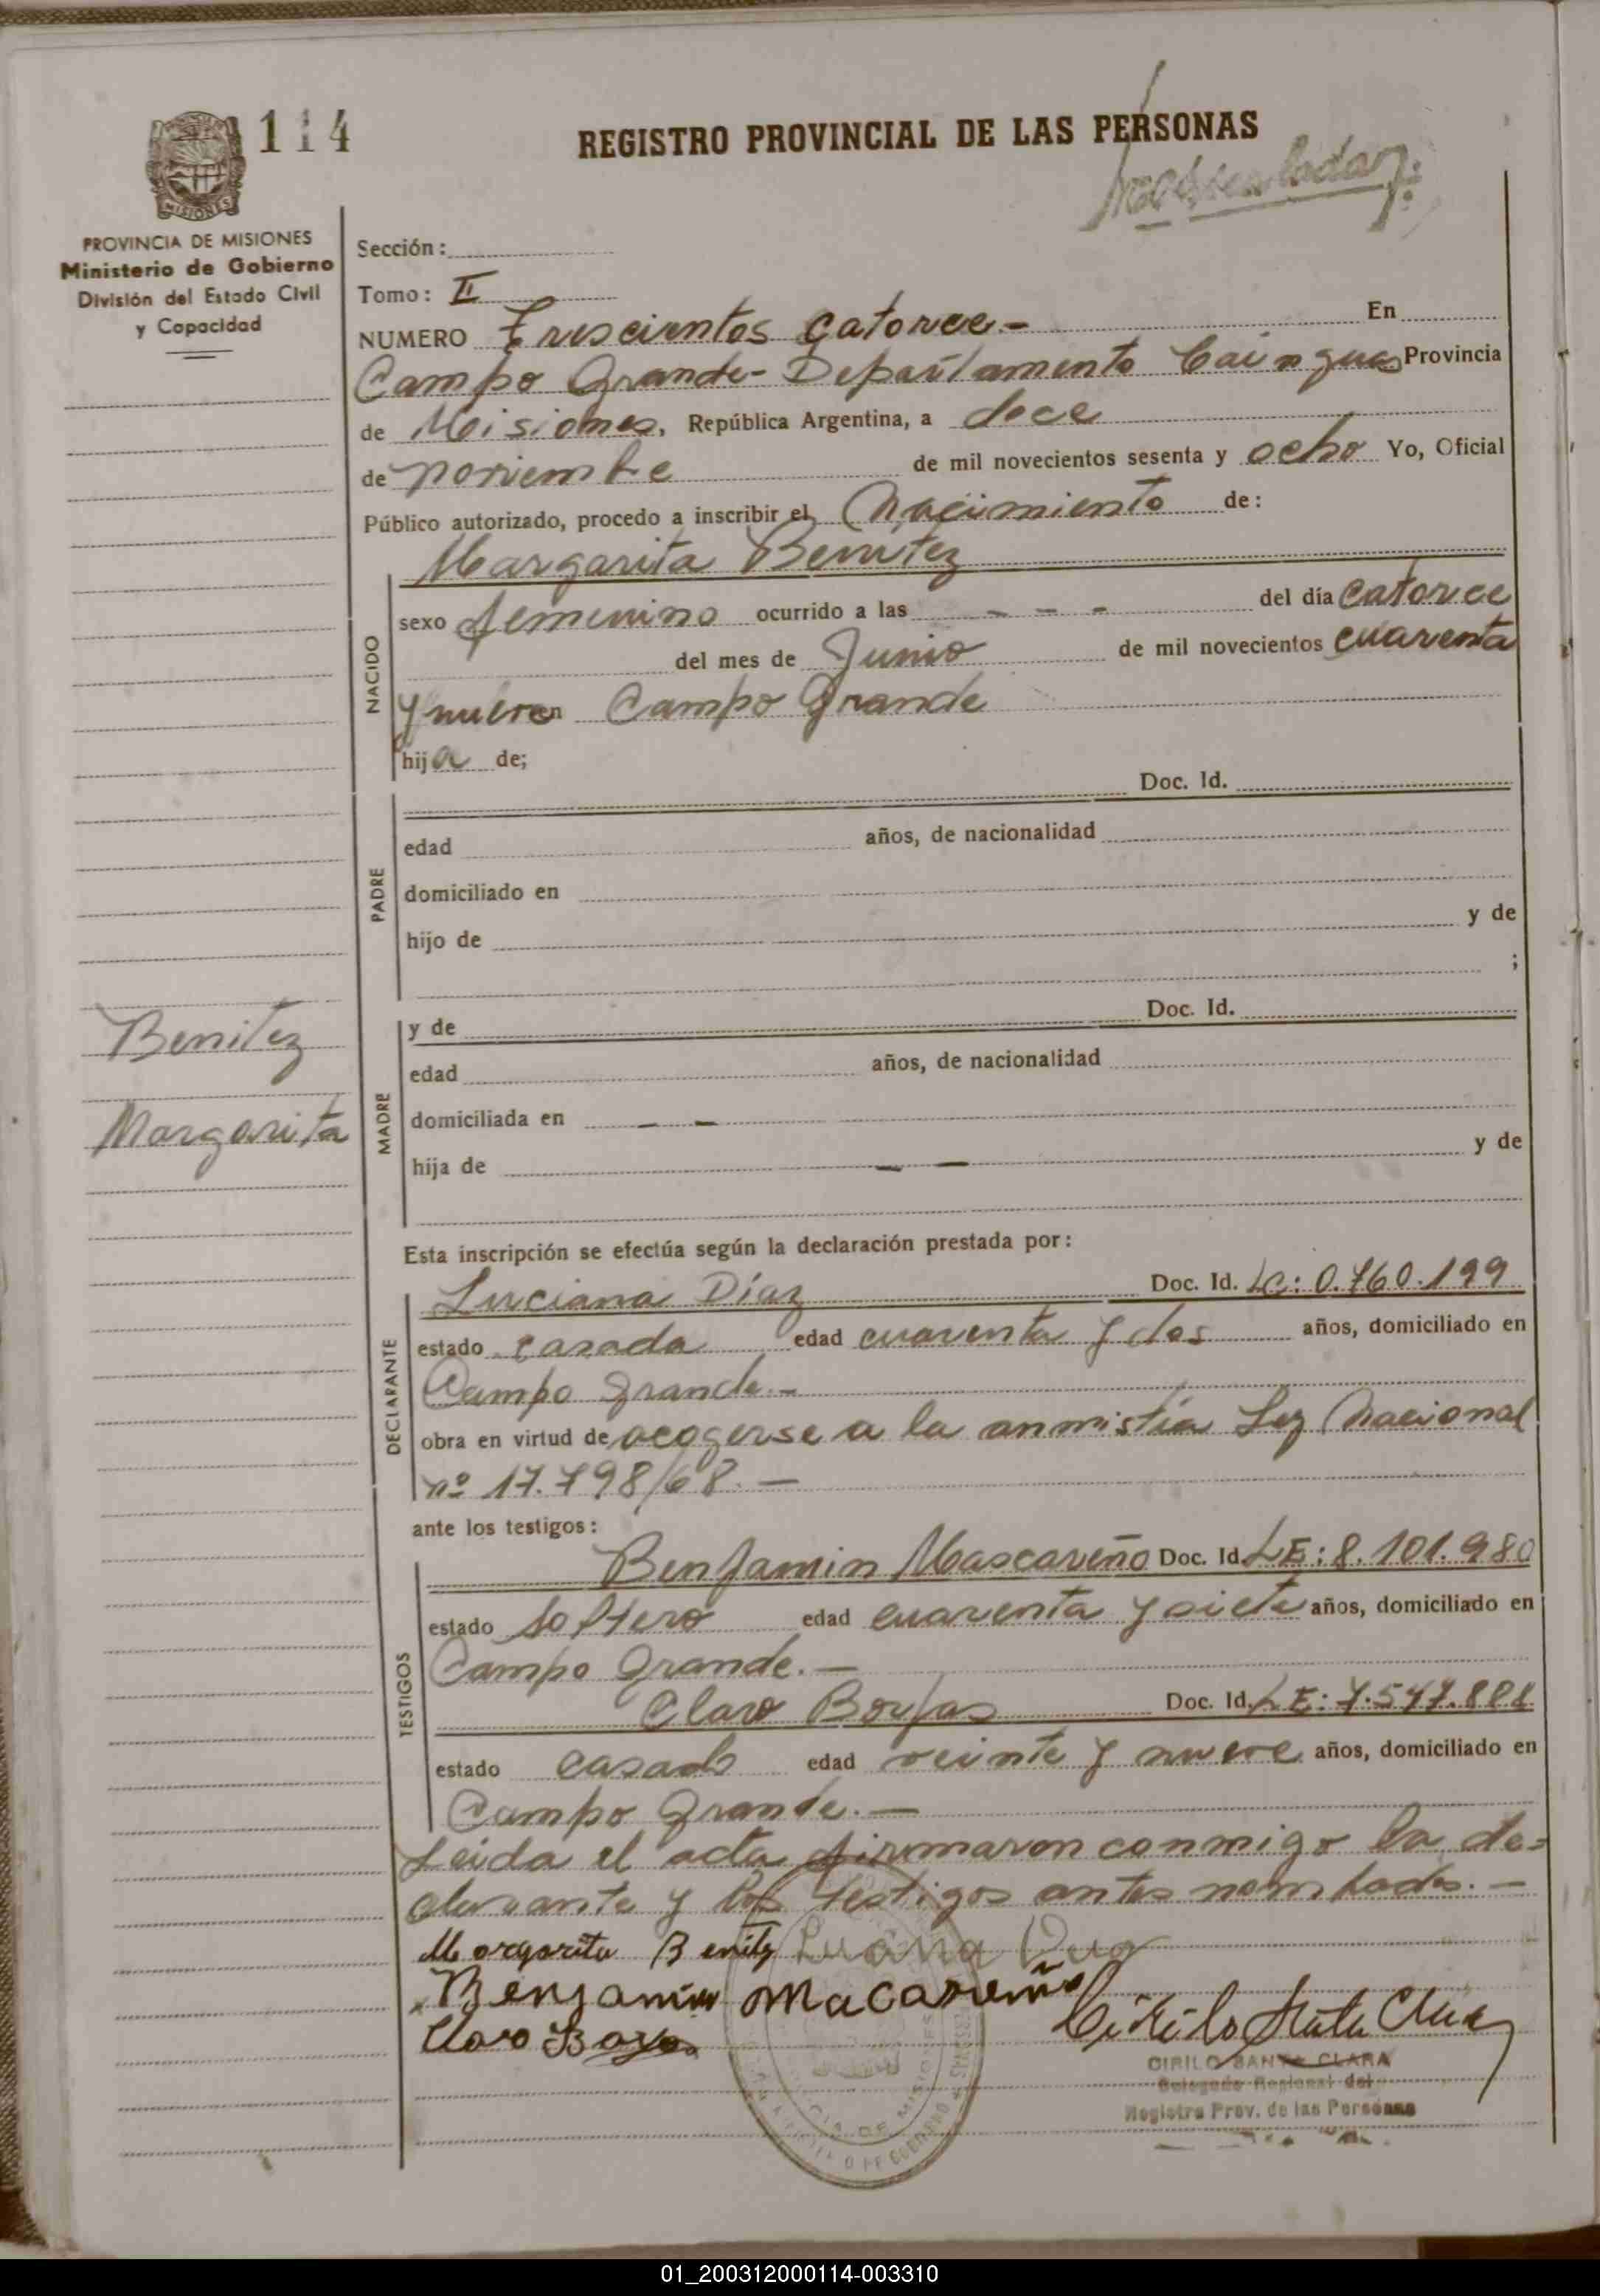 114
REGISTRO PROVINCIAL DE LAS PERSONAS
MISIONES
PROVINCIA DE MISIONES
Ministerio de Gobierno
División del Estado Civil
y Capacidad
Sección:
Tomo: II
NUMERO Trescientos catorce.- En
Campo Grande- Departamento Cainguas Provincia
de Misiones, República Argentina, a doce
de noviembre de mil novecientos sesenta y ocho Yo, Oficial
Público autorizado, procedo a inscribir el Nacimiento de:
Margarita Benitez
NACIDO
sexo femenino ocurrido a las - - - del día catorce
del mes de Junio de mil novecientos cuarenta
y nueve en Campo Grande
hija de;
PADRE
Doc. Id.
edad años, de nacionalidad
domiciliado en
hijo de y de
;
Benitez
Margarita
MADRE
y de Doc. Id.
edad años, de nacionalidad
domiciliada en - -
hija de - - y de
Esta inscripción se efectúa según la declaración prestada por:
DECLARANTE
Luciana Díaz Doc. Id. LC: 0.760.199
estado casada edad cuarenta y dos años, domiciliado en
Campo Grande.-
obra en virtud de acogerse a la anmistía Ley Nacional
nº 17.798/68.-
ante los testigos:
TESTIGOS
Benjamin Mascareño Doc. Id. LE: 8.101.980
estado soltero edad cuarenta y siete años, domiciliado en
Campo Grande.-
Claro Borjas Doc. Id. LE: 7.547.888
estado casado edad veinte y nueve años, domiciliado en
Campo Grande.-
Leida el acta firmaron conmigo la de=
clarante y los testigos antes nombrados.-
Margarita Benitz
Benjamin Macareño
Claro Borja
Cirilo Santa Clara
CIRILO SANTA CLARA
Delegado Regional del
Registro Prov. de las Personas
01_200312000114-003310